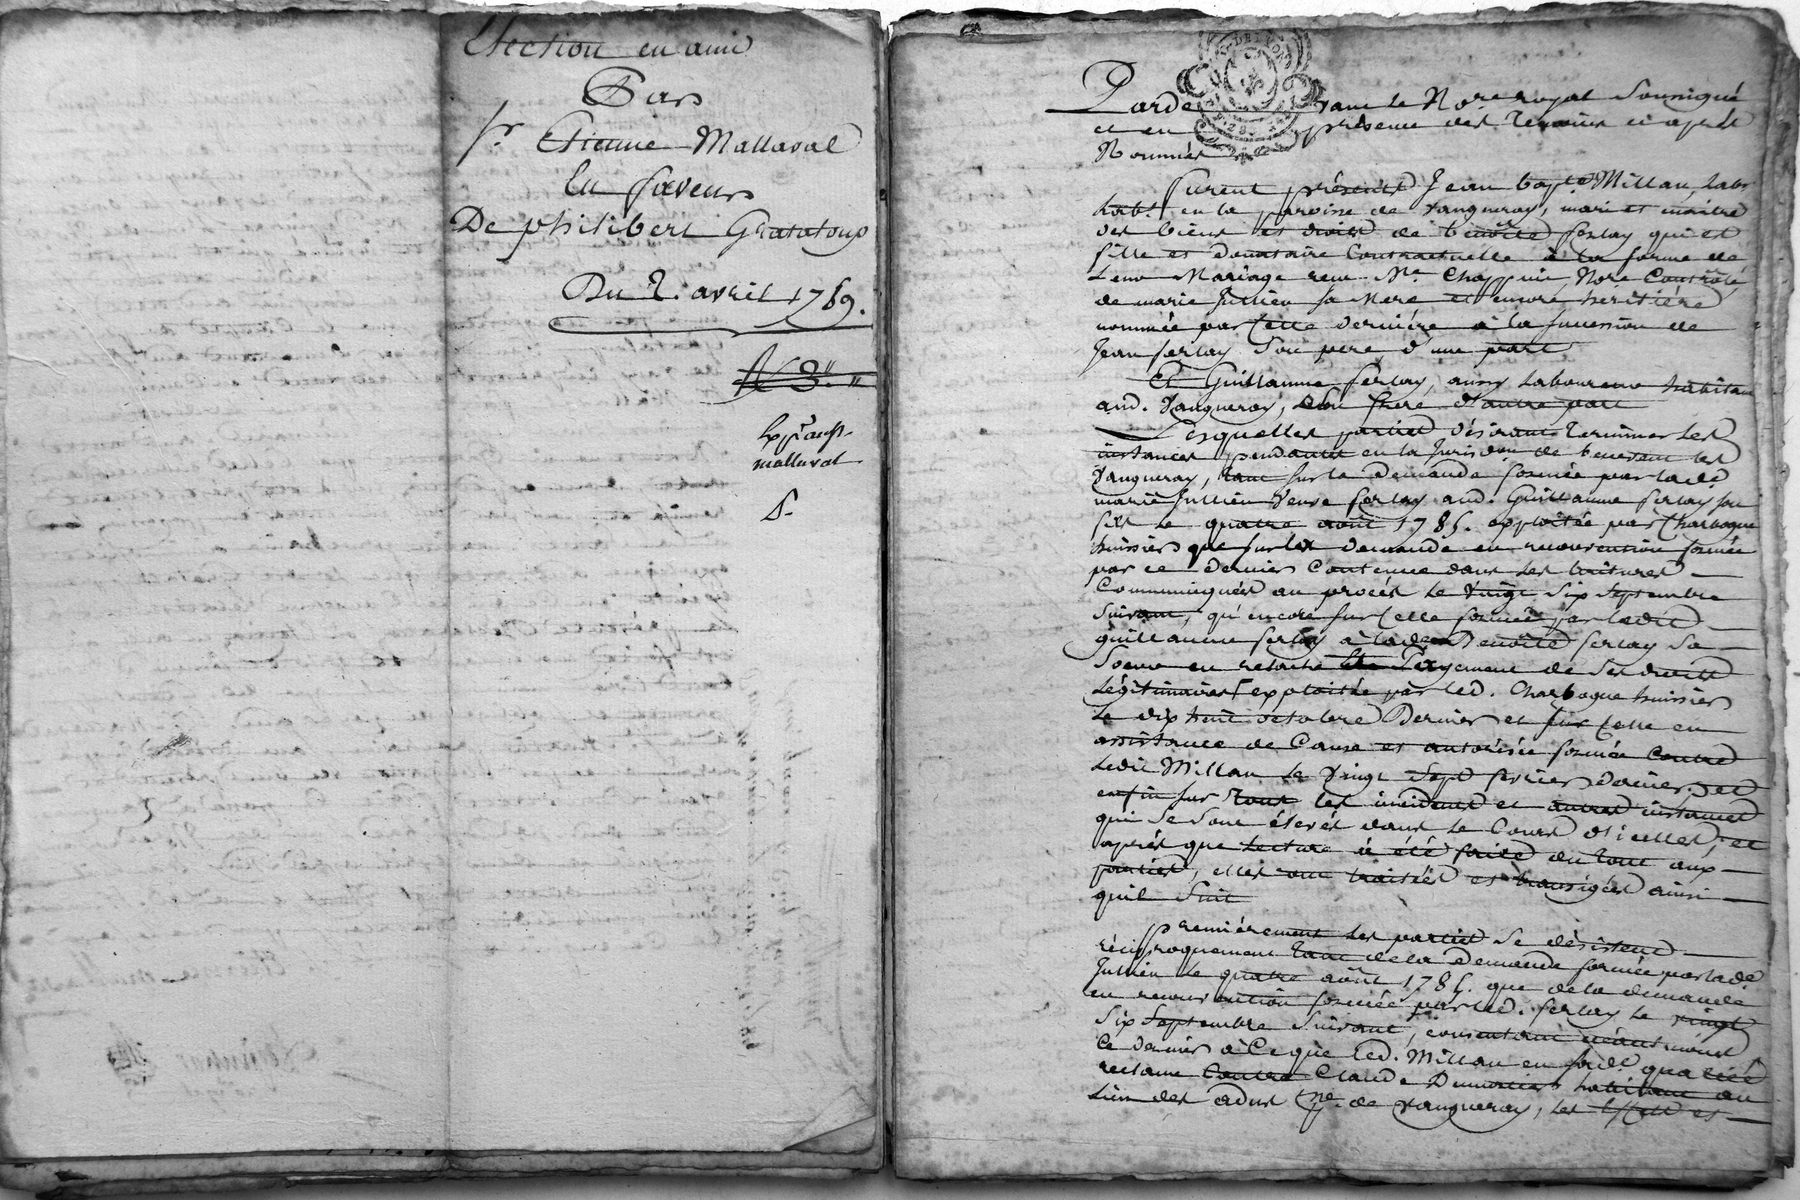 Election en ami
Par
Sr. Etienne Mallaval
En faveur
De philibert Grataloup
Du 2. avril 1789.
Expt. au Sr.
mallaval
Parde vant le Nore. royal soussigné
et en présence des temoins ci après
Nommés
furent présents Jean bapte. Millan, labr.
habt. en la paroisse de vaugneray, mari et maitre
des biens et droits de benoîte ferlay qui est
fille et donataire Contractuelle à la forme de
leur Mariage reçu Me. Chappuis Nore. Controlé,
de marie Jullien sa Mere et encore heritière
nommée par cette derniére à la succession de
Jean ferlay son pere d'une part
Et Guillaume ferlay, aussi laboureur habitant
aud. Vaugneray, son frere d'autre part
Lesquelles parties désirant terminer les
instances pendantes en la Juridon. de
Vaugneray, tant sur la demande formée par lade.
marie Jullien veuve ferlay aud. Guillaume ferlay son
fils le quatre août 1785. exploitée par Charbogne
huissier que sur la demande en reconvention formée
par ce dernier Contenue dans les Ecritures
Communiquées au procès le vingt six septembre
suivant, qu'encore sur celle formée par ledit
guillaume ferlay à lade. Benoîte ferlay sa
soeur en payement de ses droits
légitimaires exploitée par led. Charbogne huissier
le dix huit octobre Dernier et sur celle en
assistance de Cause et autorisée formée Contre
ledit Millan le vingt sept fevrier dernier, et
enfin sur tous les incidents et autres instances
qui se sont élevés dans le Cours d'icelles; et
après que lecture a été faite du tout aux
parties, elles ont traitées et transigées ainsi
quil suit
Premiérement les parties se désistent
réciproquement tant de la Demande formée par lade.
Jullien le quatre août 1785. que de la demande
en reconvention formée par led. ferlay le vingt
six septembre suivant, consentant néantmoins
ce dernier à ce que led. Millan en sade. qualité
reclame Contre Claude habitant au
lieu des adus psse. de vaugneray, les Effets et